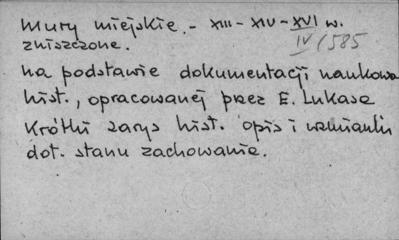 Mury miejskie. - XIII - XIV - XVI w.
zniszczone. IV/585
na podstawie dokumentacji naukowa
hist., opracowanej przez E. Lukasa
Krótki zarys hist. opis i wzmianki
dot. stanu zachowania.